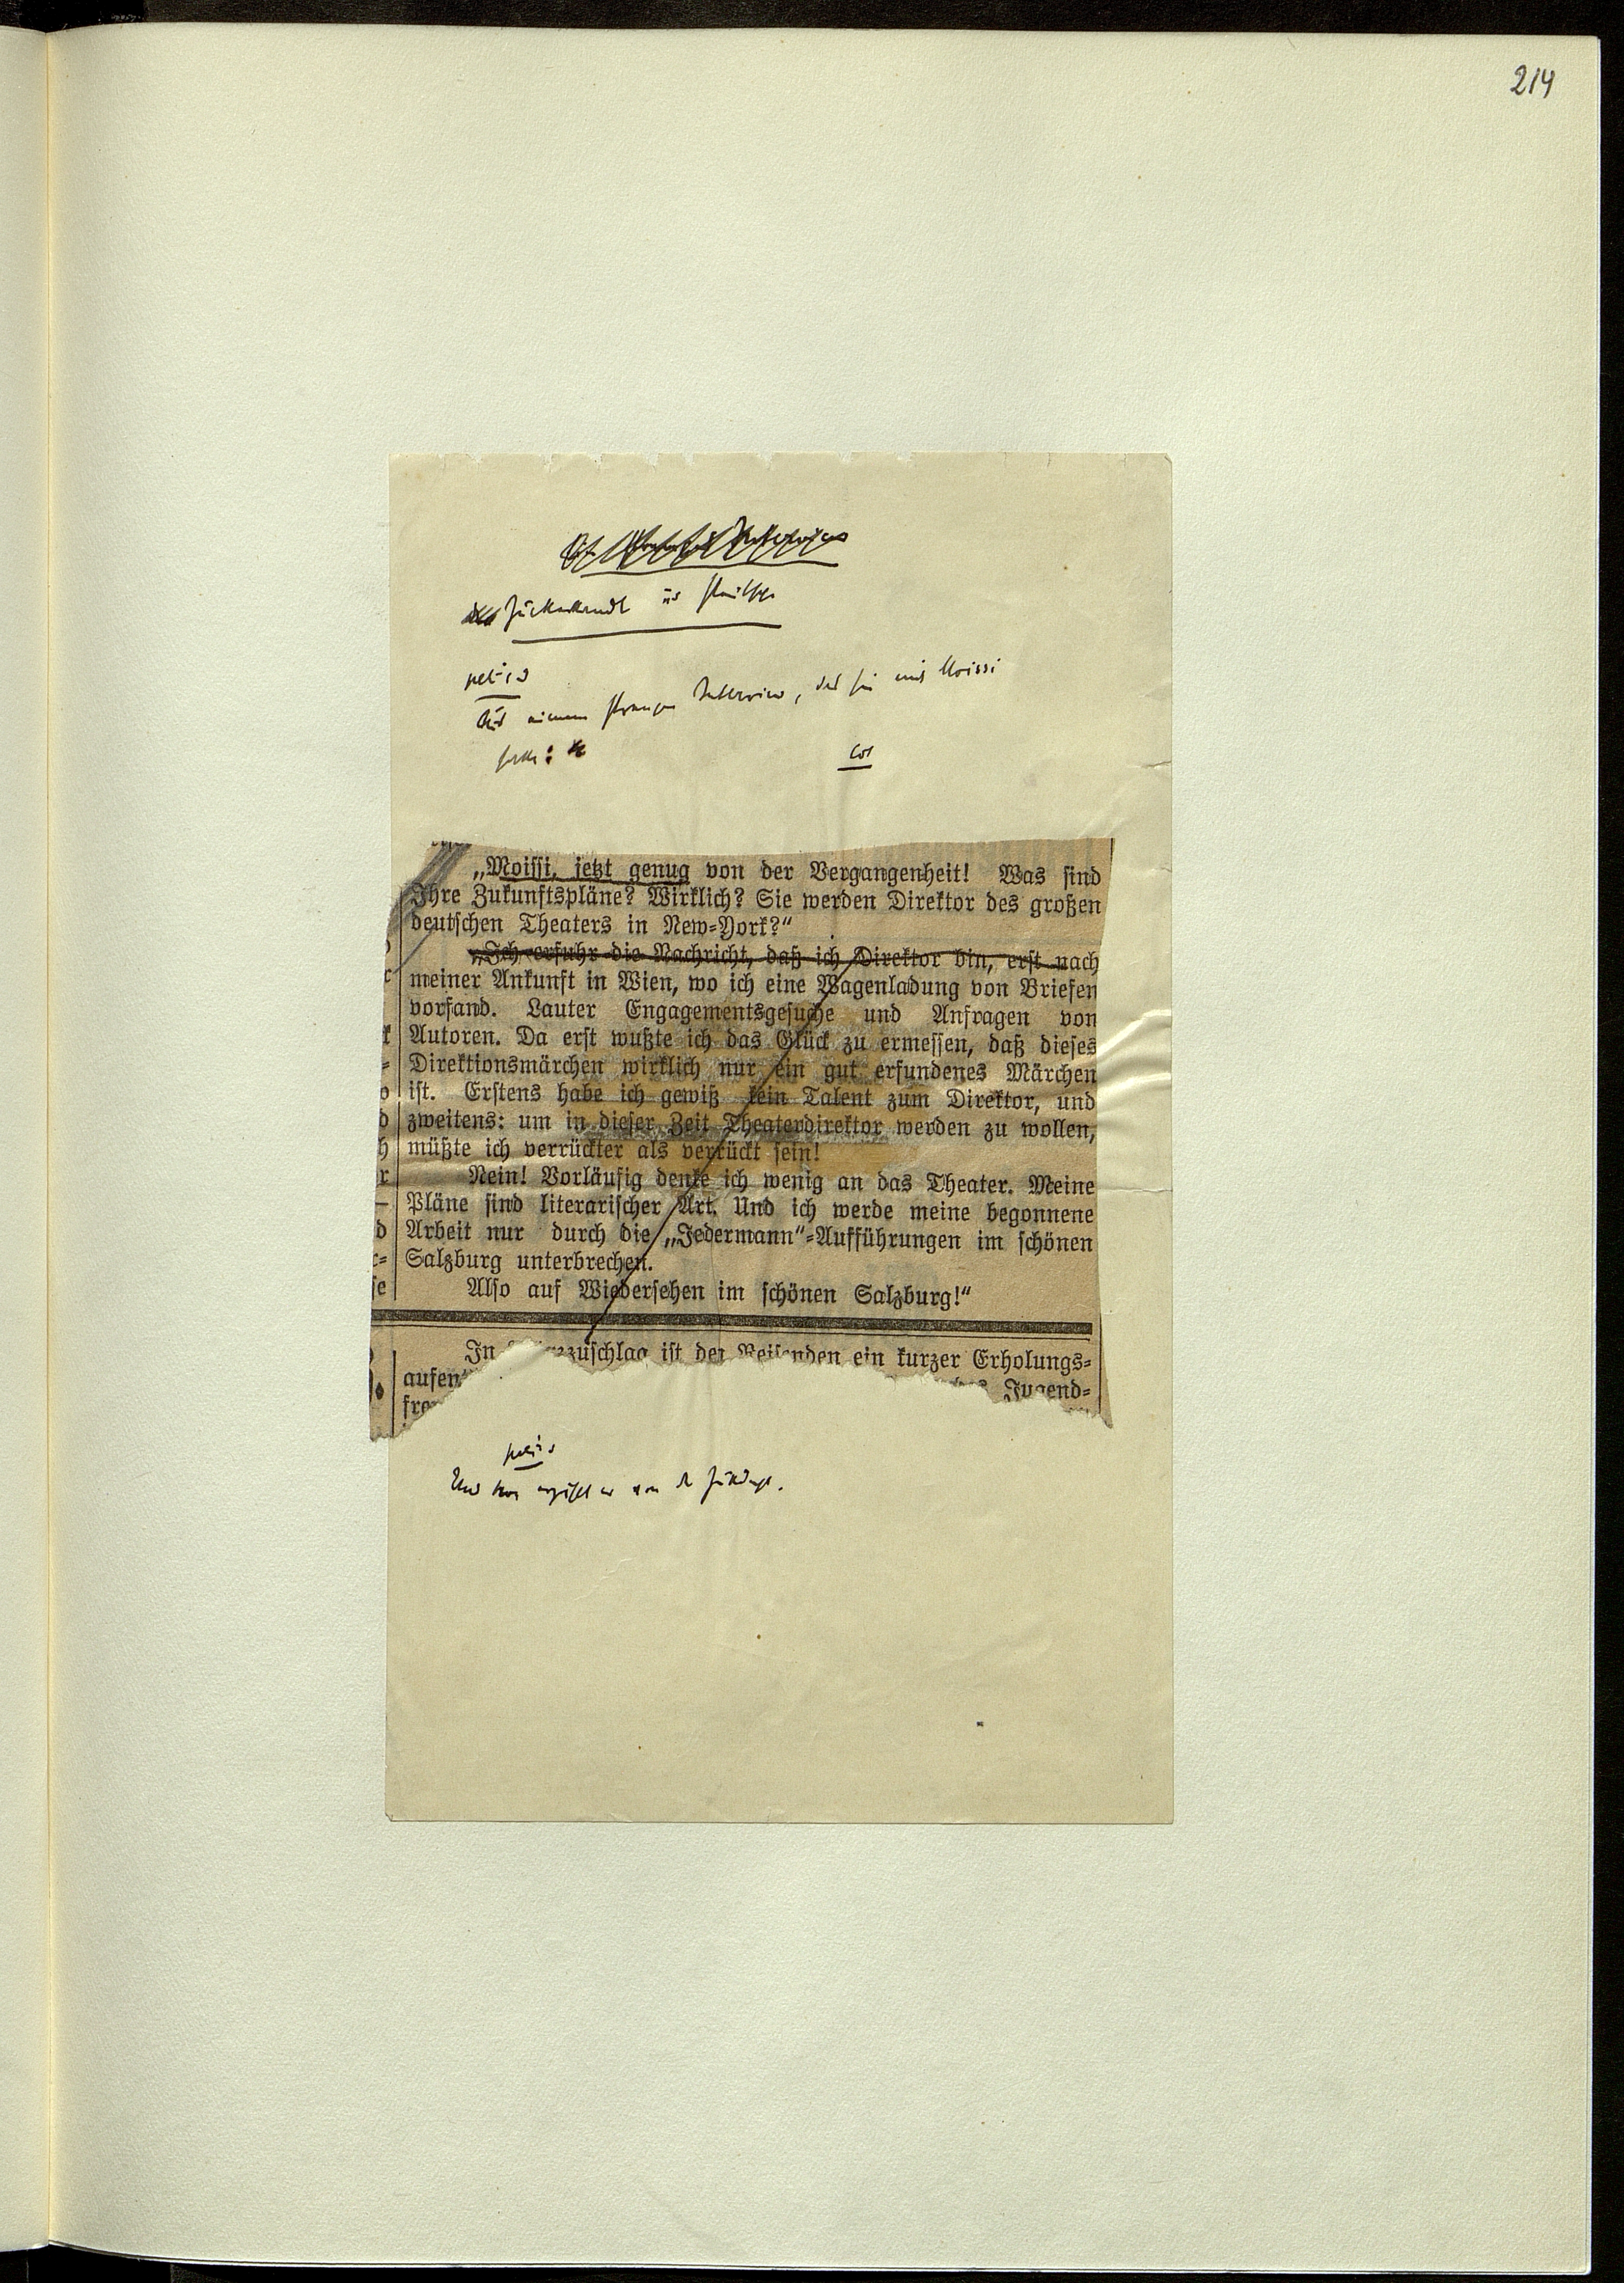 214
Zuckerkandl
Aus einem strengen Interview, das sie mit Moissi
hatte:
„Moissi, jetzt genug von der Vergangenheit! Was sind
Ihre Zukunftspläne? Wirklich? Sie werden Direktor des großen
deutschen Theaters in New-York?“
„Ich erfuhr die Nachricht, daß ich Direktor bin, erst nach
meiner Ankunft in Wien, wo ich eine Wagenladung von Briefen
vorfand. Lauter Engagementsgesuche und Anfragen von
Autoren. Da erst wußte ich das Glück zu ermessen, daß dieses
Direktionsmärchen wirklich nur ein gut erfundenes Märchen
ist. Erstens habe ich gewiß kein Talent zum Direktor, und
zweitens: um in dieser Zeit Theaterdirektor werden zu wollen,
müßte ich verrückter als verrückt sein!
Nein! Vorläufig denke ich wenig an das Theater. Meine
Pläne sind literarischer Art. Und ich werde meine begonnene
Arbeit nur durch die „Jedermann“-Aufführungen im schönen
Salzburg unterbrechen.
Also auf Wiedersehen im schönen Salzburg!“
In ist der Reisenden ein kurzer Erholungs-
Jugend-